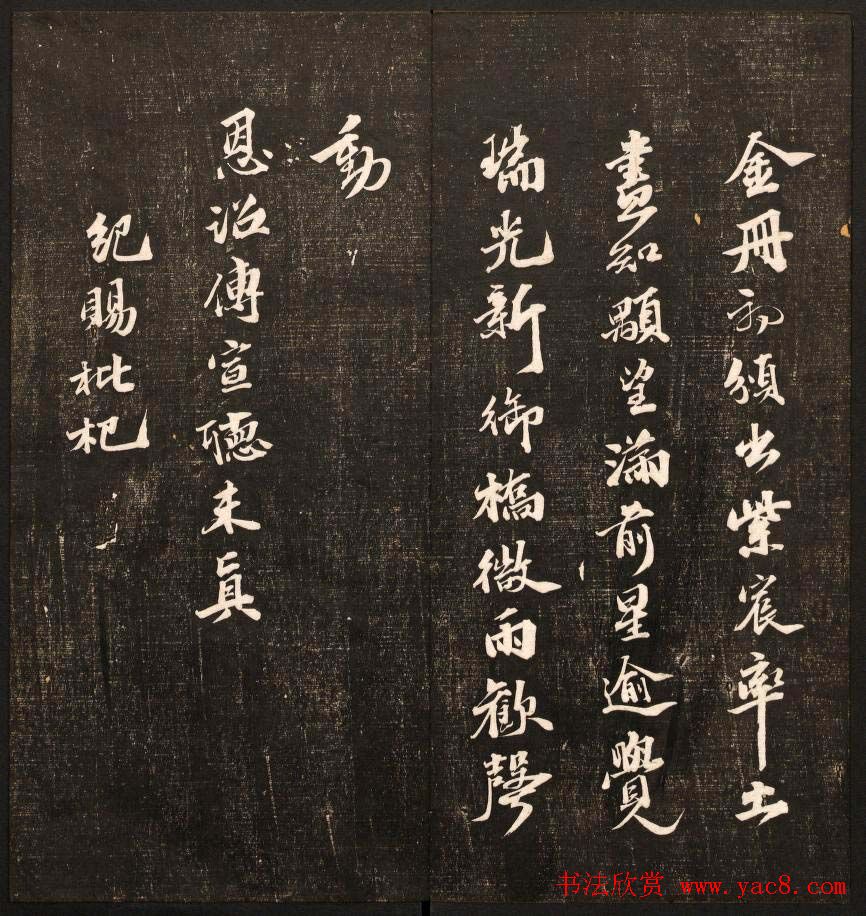 金冊初頒出紫宸率土
盡知顒望滿前星逾覺
瑞光新御橋微雨歡聲
動
恩詔傳宣聽未真
紀賜枇杷
书法欣赏 www.yac8.com